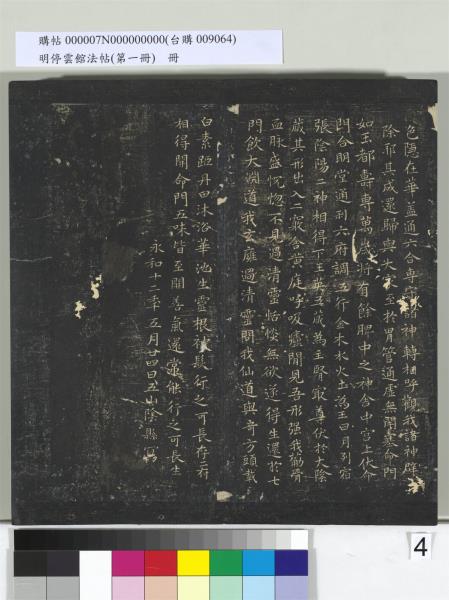 購帖 000007N000000000(台購 009064)
明停雲館法帖(第一冊) 冊
色隱在華蓋通六合專守諸神轉相呼觀我諸神辟
除耶其成還歸與大家至於胃管通虛無閉塞命門
如玉都壽專萬歲將有餘脾中之神舍中宮上伏命
門合明堂通利六府調五行金木水火土為王日月列宿
張陰陽二神相得下玉英五藏為主腎最尊伏於大陰
藏其形出入二竅舍黃庭呼吸廬間見吾形強我筋骨
血脉盛怳惚不見過清靈恬惔無欲遂得生還於七
門飲大淵道我玄雍過清靈問我仙道與奇方頭載
白素距丹田沐浴華池生靈根被髮行之可長存二府
相得開命門五味皆至開善氣還常能行之可長生
永和十二年五月廿四日五山陰縣寫
4